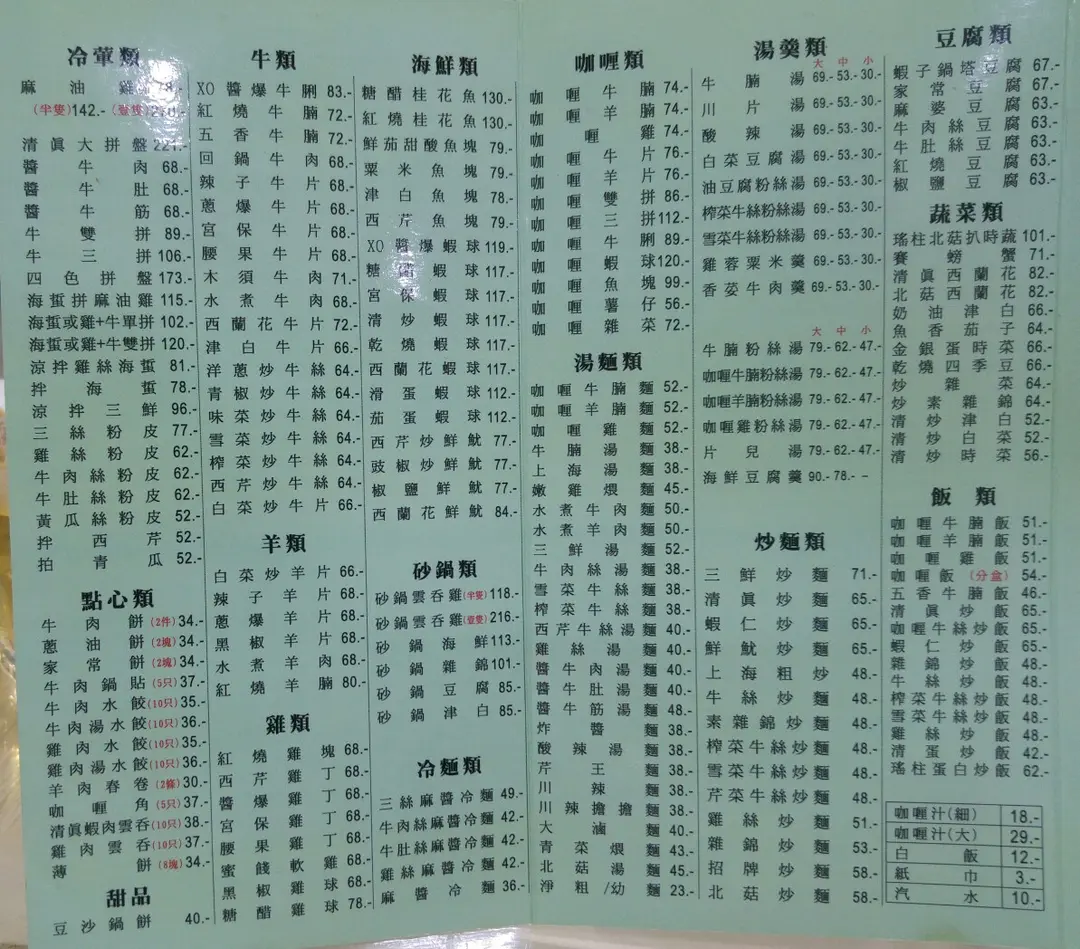 冷葷類
麻油雞 78.-
(半隻)142.- (壹隻)270.-
清眞大拼盤 221.-
醬牛肉 68.-
醬牛肚 68.-
醬牛筋 68.-
牛雙拼 89.-
牛三拼 106.-
四色拼盤 173.-
海蜇拼麻油雞 115.-
海蜇或雞+牛單拼 102.-
海蜇或雞+牛雙拼 120.-
涼拌雞絲海蜇 81.-
拌海蜇 78.-
涼拌三鮮 96.-
三絲粉皮 77.-
雞絲粉皮 62.-
牛肉絲粉皮 62.-
牛肚絲粉皮 62.-
黃瓜絲粉皮 52.-
拌西芹 52.-
拍青瓜 52.-
點心類
牛肉餅(2件) 34.-
蔥油餅(2塊) 34.-
家常餅(2塊) 34.-
牛肉鍋貼(5只) 37.-
牛肉水餃(10只) 35.-
牛肉湯水餃(10只) 36.-
雞肉水餃(10只) 35.-
雞肉湯水餃(10只) 36.-
羊肉春卷(2條) 30.-
咖喱角(5只) 37.-
清眞蝦肉雲吞(10只) 38.-
雞肉雲吞(10只) 37.-
薄餅(8塊) 34.-
甜品
豆沙鍋餅 40.-
牛類
XO醬爆牛脷 83.-
紅燒牛腩 72.-
五香牛腩 72.-
回鍋牛肉 68.-
辣子牛片 68.-
蔥爆牛片 68.-
宮保牛片 68.-
腰果牛片 68.-
木須牛肉 71.-
水煮牛肉 68.-
西蘭花牛片 72.-
津白牛片 66.-
洋蔥炒牛絲 64.-
青椒炒牛絲 64.-
味菜炒牛絲 64.-
雪菜炒牛絲 64.-
榨菜炒牛絲 64.-
西芹炒牛絲 64.-
白菜炒牛片 66.-
羊類
白菜炒羊片 66.-
辣子羊片 68.-
蔥爆羊片 68.-
黑椒羊片 68.-
水煮羊肉 68.-
紅燒羊腩 80.-
雞類
紅燒雞塊 68.-
西芹雞丁 68.-
醬爆雞丁 68.-
宮保雞丁 68.-
腰果雞丁 68.-
蜜餞軟雞 68.-
黑椒雞球 68.-
糖醋雞球 78.-
海鮮類
糖醋桂花魚 130.-
紅燒桂花魚 130.-
鮮茄甜酸魚塊 79.-
粟米魚塊 79.-
津白魚塊 78.-
西芹魚塊 79.-
XO醬爆蝦球 119.-
糖醋蝦球 117.-
宮保蝦球 117.-
清炒蝦球 117.-
乾燒蝦球 117.-
西蘭花蝦球 117.-
滑蛋蝦球 112.-
茄蛋蝦球 112.-
西芹炒鮮魷 77.-
豉椒炒鮮魷 77.-
椒鹽鮮魷 77.-
西蘭花鮮魷 84.-
砂鍋類
砂鍋雲吞雞(半隻) 118.-
砂鍋雲吞雞(壹隻) 216.-
砂鍋海鮮 113.-
砂鍋雜錦 101.-
砂鍋豆腐 85.-
砂鍋津白 85.-
冷麵類
三絲麻醬冷麵 49.-
牛肉絲麻醬冷麵 42.-
牛肚絲麻醬冷麵 42.-
雞絲麻醬冷麵 42.-
麻醬冷麵 36.-
咖喱類
咖喱牛腩 74.-
咖喱羊腩 74.-
咖喱雞 74.-
咖喱牛片 76.-
咖喱羊片 76.-
咖喱雙拼 86.-
咖喱三拼 112.-
咖喱牛脷 89.-
咖喱蝦球 120.-
咖喱魚塊 99.-
咖喱薯仔 56.-
咖喱雜菜 72.-
湯麵類
咖喱牛腩麵 52.-
咖喱羊腩麵 52.-
咖喱雞麵 52.-
牛腩湯麵 38.-
上海湯麵 38.-
嫩雞煨麵 45.-
水煮牛肉麵 50.-
水煮羊肉麵 50.-
三鮮湯麵 52.-
牛肉絲湯麵 38.-
雪菜牛絲麵 38.-
榨菜牛絲麵 38.-
西芹牛絲湯麵 40.-
雞絲湯麵 40.-
醬牛肉湯麵 40.-
醬牛肚湯麵 40.-
醬牛筋湯麵 40.-
炸醬麵 38.-
酸辣湯麵 38.-
芹王麵 38.-
川辣麵 38.-
川辣擔擔麵 38.-
大滷麵 40.-
青菜煨麵 43.-
北菇湯麵 45.-
淨粗/幼麵 23.-
湯羹類
大 中 小
牛腩湯 69.- 53.- 30.-
川片湯 69.- 53.- 30.-
酸辣湯 69.- 53.- 30.-
白菜豆腐湯 69.- 53.- 30.-
油豆腐粉絲湯 69.- 53.- 30.-
榨菜牛絲粉絲湯 69.- 53.- 30.-
雪菜牛絲粉絲湯 69.- 53.- 30.-
雞蓉粟米羹 69.- 53.- 30.-
香荽牛肉羹 69.- 53.- 30.-
大 中 小
牛腩粉絲湯 79.- 62.- 47.-
咖喱牛腩粉絲湯 79.- 62.- 47.-
咖喱羊腩粉絲湯 79.- 62.- 47.-
咖喱雞粉絲湯 79.- 62.- 47.-
片兒湯 79.- 62.- 47.-
海鮮豆腐羹 90.- 78.- –
炒麵類
三鮮炒麵 71.-
清眞炒麵 65.-
蝦仁炒麵 65.-
鮮魷炒麵 65.-
上海粗炒 48.-
牛絲炒麵 48.-
素雜錦炒麵 48.-
榨菜牛絲炒麵 48.-
雪菜牛絲炒麵 48.-
芹菜牛絲炒麵 48.-
雞絲炒麵 51.-
雜錦炒麵 53.-
招牌炒麵 58.-
北菇炒麵 58.-
豆腐類
蝦子鍋塔豆腐 67.-
家常豆腐 67.-
麻婆豆腐 63.-
牛肉絲豆腐 63.-
牛肚絲豆腐 63.-
紅燒豆腐 63.-
椒鹽豆腐 63.-
蔬菜類
瑤柱北菇扒時蔬 101.-
賽螃蟹 71.-
清眞西蘭花 82.-
北菇西蘭花 82.-
奶油津白 66.-
魚香茄子 64.-
金銀蛋時菜 66.-
乾燒四季豆 66.-
炒雜菜 64.-
炒素雜錦 64.-
清炒津白 52.-
清炒白菜 52.-
清炒時菜 56.-
飯類
咖喱牛腩飯 51.-
咖喱羊腩飯 51.-
咖喱雞飯 51.-
咖喱飯(分盒) 54.-
五香牛腩飯 46.-
清眞炒飯 65.-
咖喱牛絲炒飯 65.-
蝦仁炒飯 65.-
雜錦炒飯 48.-
牛絲炒飯 48.-
榨菜牛絲炒飯 48.-
雪菜牛絲炒飯 48.-
雞絲炒飯 48.-
清蛋炒飯 42.-
瑤柱蛋白炒飯 62.-
咖喱汁(細) 18.-
咖喱汁(大) 29.-
白飯 12.-
紙巾 3.-
汽水 10.-